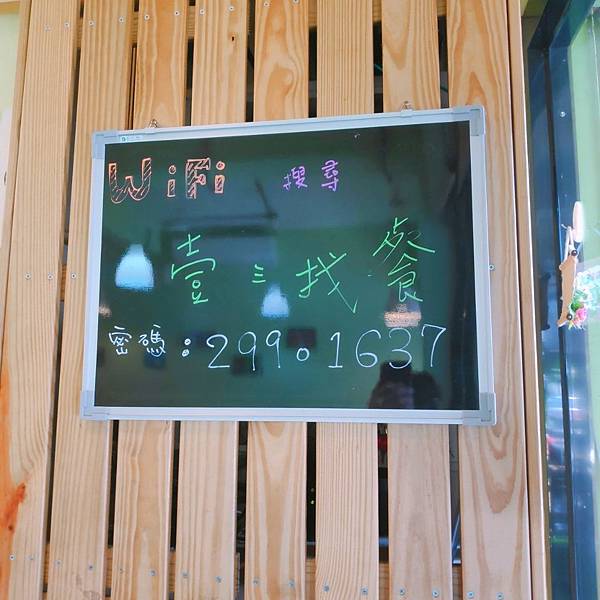 WiFi 搜尋
壹三找餐
密碼:29901637